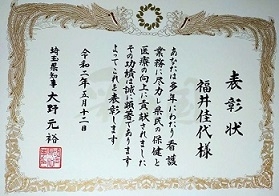 表彰状
福井佳代様
あなたは多年にわたり看護
業務に尽力し県民の保健と
医療の向上に貢献されました
その功績は誠に顕著であります
よってこれを表彰します
令和二年五月十二日
埼玉県知事 大野元裕